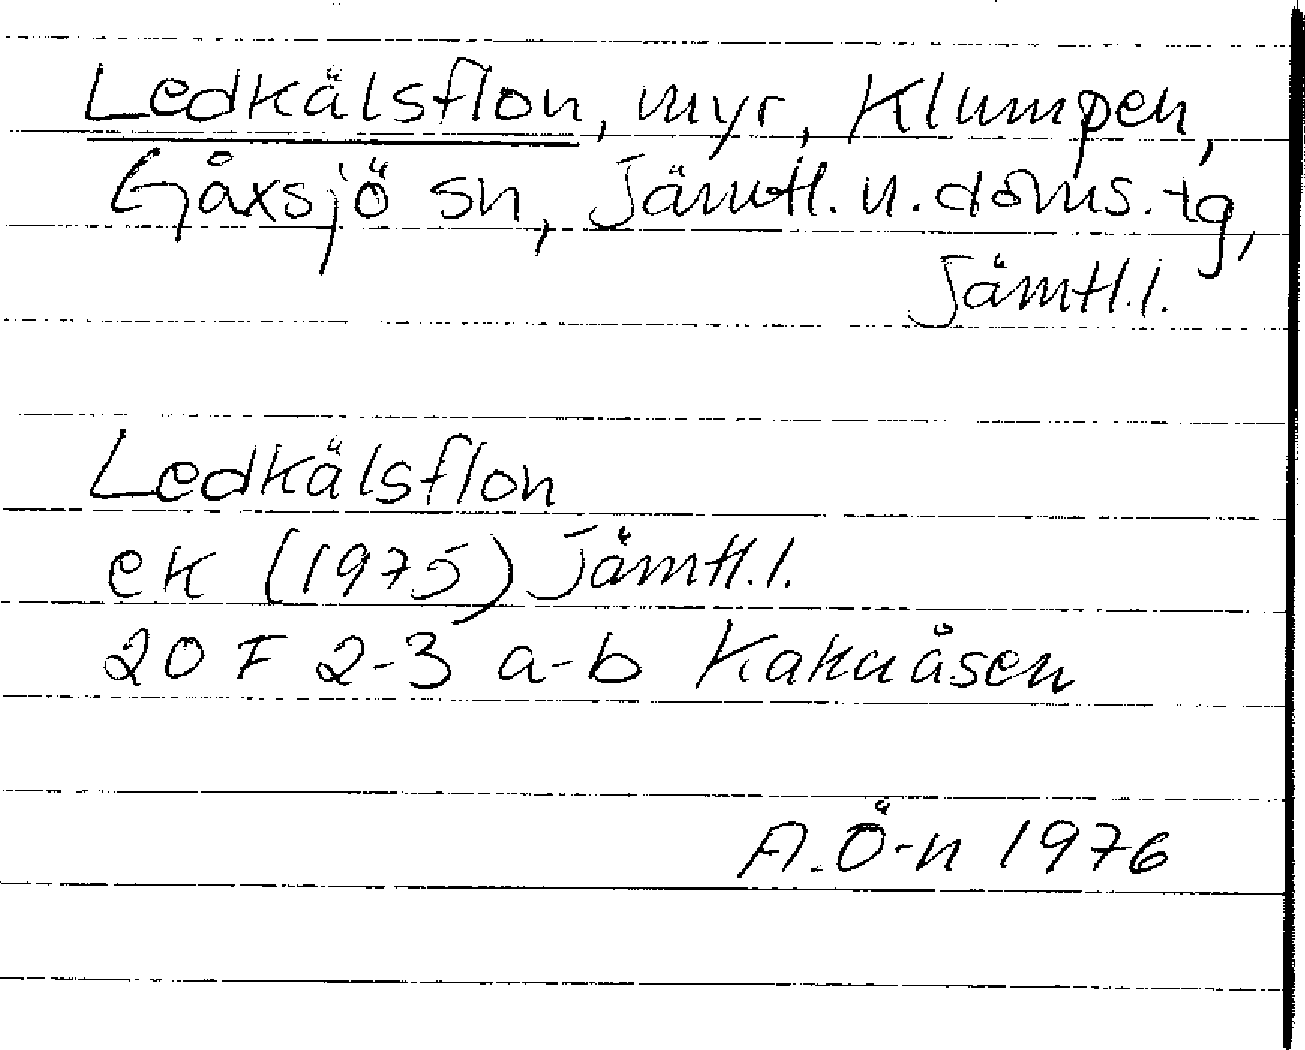 Ledkälsflon, myr, Klumpen,
Gåxsjö sn, Jämtl. n. doms. tg,
Jämtl. l.
Ledkälsflon
ek (1975) Jämtl. l.
20 F 2-3 a-b Kakuåsen
A. Ö-n 1976